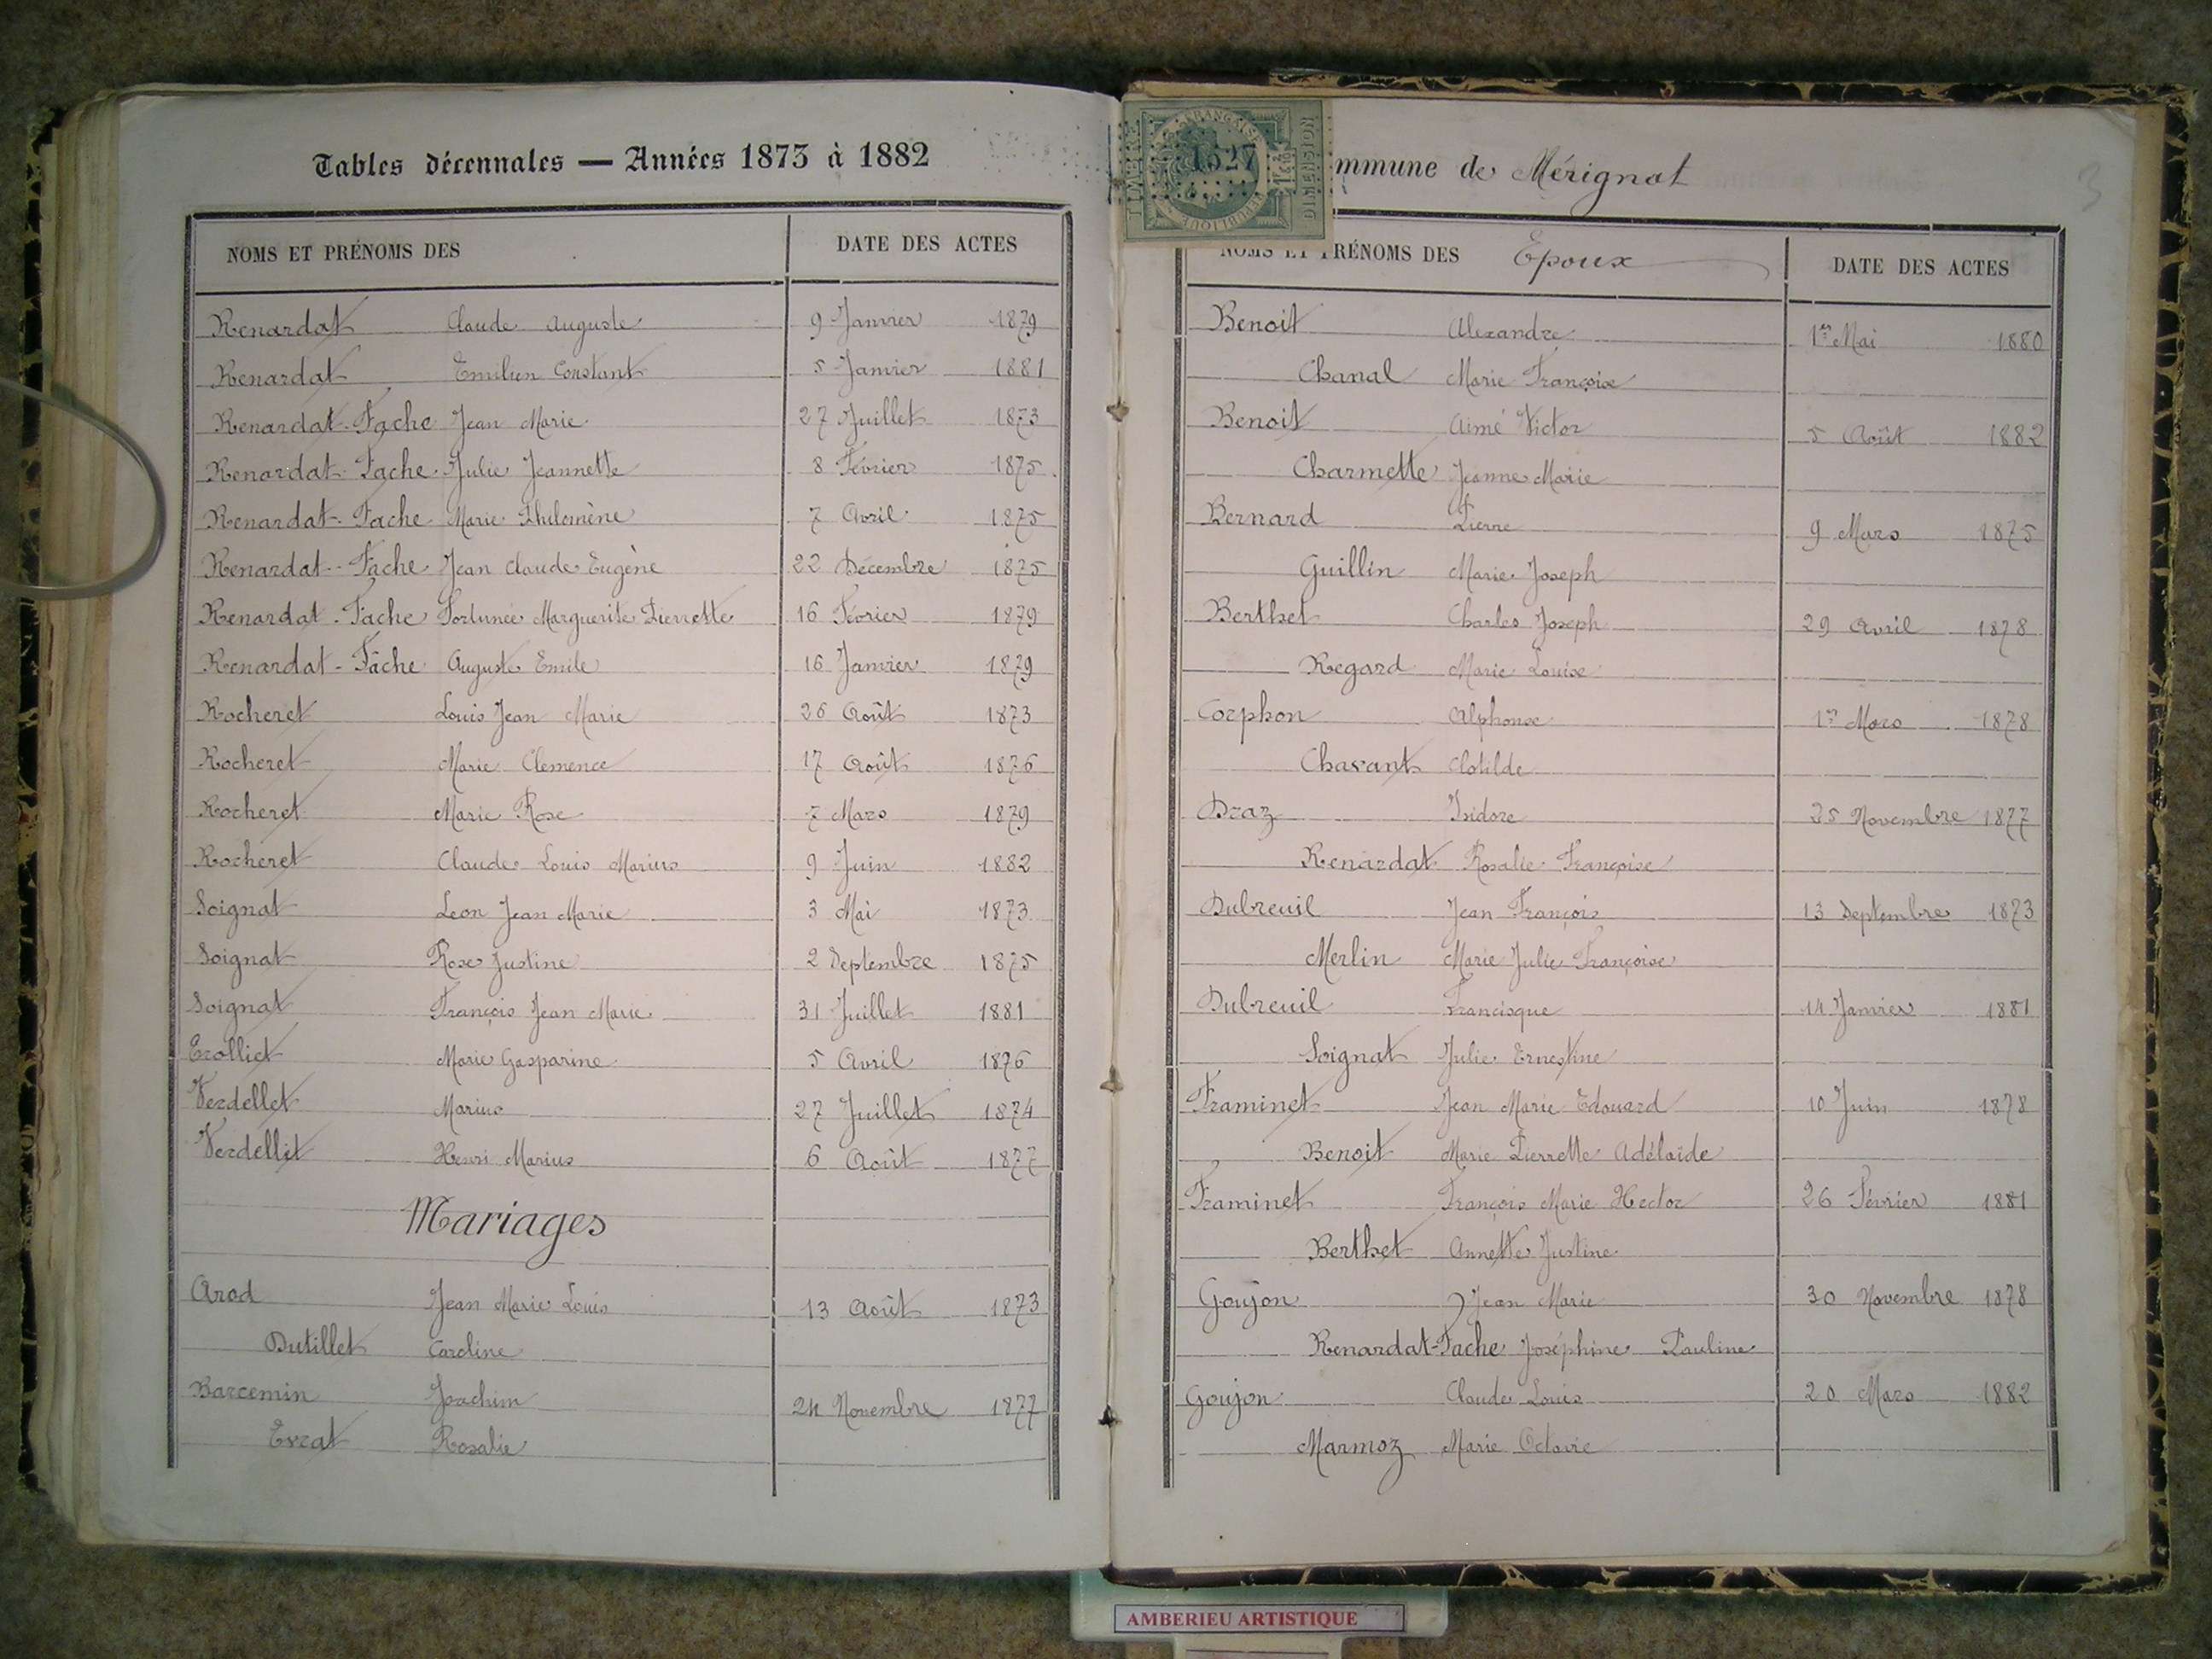 Tables décennales — Années 1873 à 1882
NOMS ET PRÉNOMS DES DATE DES ACTES
Renardat Claude Auguste 9 Janvier 1879
Renardat Emilien Constant 5 Janvier 1881
Renardat-Fache Jean Marie 27 Juillet 1873
Renardat-Fache Julie Jeannette 8 Février 1875
Renardat-Fache Marie Philomène 7 Avril 1875
Renardat-Fache Jean Claude Eugène 22 Décembre 1875
Renardat-Fache Fortunée Marguerite Pierrette 16 Février 1879
Renardat-Fâche Auguste Emile 16 Janvier 1879
Rocheret Louis Jean Marie 26 Août 1873
Rocheret Marie Clemence 17 Août 1876
Rocheret Marie Rose 7 Mars 1879
Rocheret Claude Louis Marius 9 Juin 1882
Soignat Leon Jean Marie 3 Mai 1873
Soignat Rose Justine 2 Septembre 1875
Soignat François Jean Marie 31 Juillet 1881
Marie Gasparine 5 Avril 1876
Verdellet Marius 27 Juillet 1874
Verdellet Henri Marius 6 Août 1877
Mariages
Arod Jean Marie Louis 13 Août 1873
Dutillet Caroline
Barcemin Joachim 24 Novembre 1877
Evrat Rosalie
TIMBRE 1527 DIMENSION
RÉPUBLIQUE FRANÇAISE
mmune de Mérignat
3
NOMS ET PRÉNOMS DES Epoux DATE DES ACTES
Benoit Alexandre 1er Mai 1880
Chanal Marie Françoise
Benoit Aimé Victor 5 Août 1882
Charmette Jeanne Marie
Bernard Pierre 9 Mars 1875
Guillin Marie Joseph
Berthet Charles Joseph 29 Avril 1878
Regard Marie Louise
Corphon Alphonse 1er Mars 1878
Chavant Clotilde
Draz Isidore 25 Novembre 1877
Renardat Rosalie Françoise
Dubreuil Jean François 13 Septembre 1873
Merlin Marie Julie Françoise
Dubreuil Francisque 14 Janvier 1881
Soignat Julie Ernestine
Framinet Jean Marie Edouard 10 Juin 1878
Benoit Marie Pierrette Adélaïde
Framinet François Marie Hector 26 Février 1881
Berthet Annette Justine
Goujon Jean Marie 30 Novembre 1878
Renardat-Fache Joséphine Pauline
Goujon Claude Louis 20 Mars 1882
Marmoz Marie Octavie
AMBERIEU ARTISTIQUE